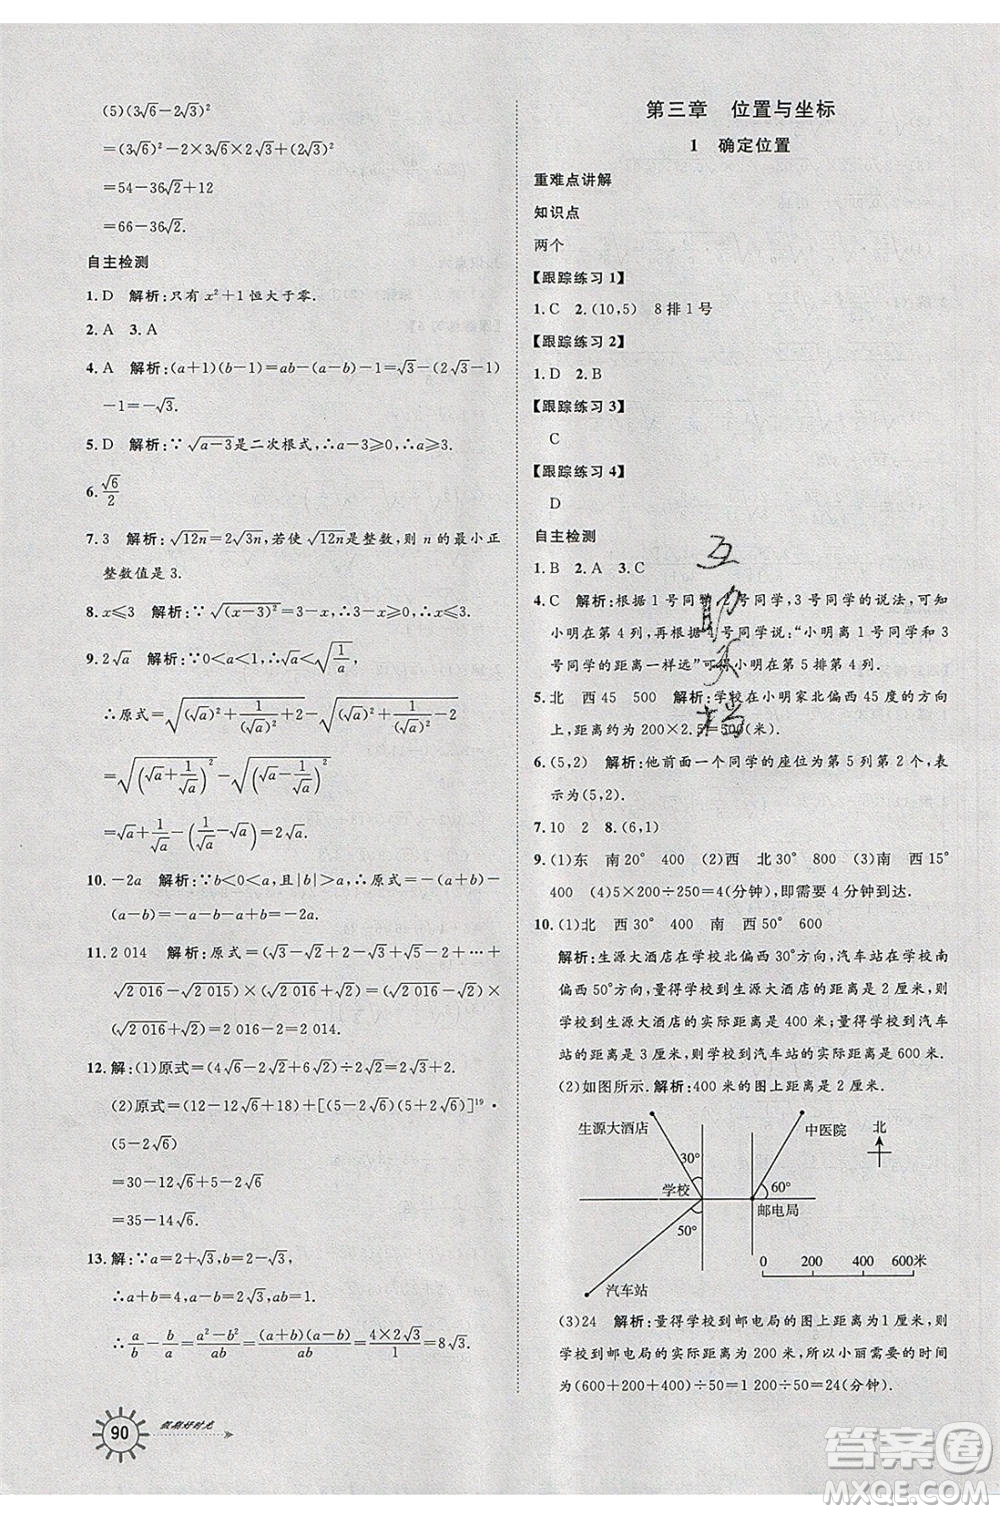 (5)(3√6－2√3)²
＝(3√6)²－2×3√6×2√3＋(2√3)²
＝54－36√2＋12
＝66－36√2.
自主检测
1. D 解析:只有 x²＋1 恒大于零.
2. A 3. A
4. A 解析:(a＋1)(b－1)＝ab－(a－b)－1＝√3－(2√3－1)
－1＝－√3.
5. D 解析:∵√(a－3)是二次根式,∴a－3≥0,∴a≥3.
6. √6/2
7. 3 解析:√(12n)＝2√(3n),若使√(12n)是整数,则 n 的最小正
整数值是 3.
8. x≤3 解析:∵√((x－3)²)＝3－x,∴3－x≥0,∴x≤3.
9. 2√a 解析:∵0＜a＜1,∴√a＜1/√a,
∴原式＝√((√a)²＋(1/√a)²＋2)－√((√a)²＋(1/√a)²－2)
＝√((√a＋1/√a)²)－√((√a－1/√a)²)
＝√a＋1/√a－(1/√a－√a)＝2√a.
10. －2a 解析:∵b＜0＜a,且|b|＞|a|,∴原式＝－(a＋b)－
(a－b)＝－a－b－a＋b＝－2a.
11. 2 014 解析:原式＝(√3－√2＋√4－√3＋√5－√4＋…＋
√2 016－√2 015)(√2 016＋√2)＝(√2 016－√2)×
(√2 016＋√2)＝2 016－2＝2 014.
12. 解:(1)原式＝(4√6－2√6＋6√2)÷2√2＝√3＋3.
(2)原式＝(12－12√6＋18)＋[(5－2√6)(5＋2√6)]¹⁹·
(5－2√6)
＝30－12√6＋5－2√6
＝35－14√6.
13. 解:∵a＝2＋√3,b＝2－√3,
∴a＋b＝4,a－b＝2√3,ab＝1.
∴a/b－b/a＝(a²－b²)/ab＝(a＋b)(a－b)/ab＝4×2√3/1＝8√3.
90 假期好时光
第三章 位置与坐标
1 确定位置
重难点讲解
知识点
两个
【跟踪练习 1】
1. C 2. (10,5) 8 排 1 号
【跟踪练习 2】
1. D 2. B
【跟踪练习 3】
C
【跟踪练习 4】
D
自主检测
1. B 2. A 3. C
4. C 解析:根据 1 号同学,2 号同学,3 号同学的说法,可知
小明在第 4 列,再根据 4 号同学说:“小明离 1 号同学和 3
号同学的距离一样远”可得小明在第 5 排第 4 列.
5. 北 西 45 500 解析:学校在小明家北偏西 45 度的方向
上,距离约为 200×2.5＝500(米).
6. (5,2) 解析:他前面一个同学的座位为第 5 列第 2 个,表
示为(5,2).
7. 10 2 8. (6,1)
9. (1)东 南 20° 400 (2)西 北 30° 800 (3)西 南 15°
400 (4)5×200÷250＝4(分钟),即需要 4 分钟到达.
10. (1)北 西 30° 400 南 西 50° 600
解析:生源大酒店在学校北偏西 30°方向,汽车站在学校南
偏西 50°方向;量得学校到生源大酒店的距离是 2 厘米,
则学校到生源大酒店的实际距离是 400 米;量得学校到汽车
站的距离是 3 厘米,则学校到汽车站的实际距离是 600 米.
(2)如图所示. 解析:400 米的图上距离是 2 厘米.
生源大酒店 中医院 北
30°
学校 60°
50° 邮电局
0 200 400 600米
汽车站
(3)24 解析:量得学校到邮电局的图上距离为1 厘米,则
学校到邮电局的实际距离为 200 米,所以小丽需要的时间
为(600＋200＋400)÷50＝1 200÷50＝24(分钟).
互助文档
答案卷
MXQE.COM